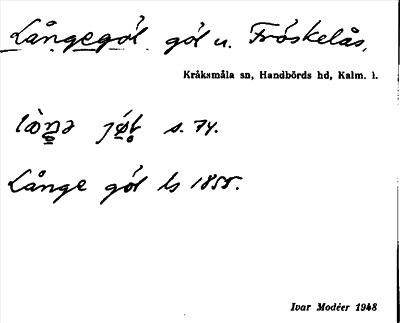 Långegöl. göl u. Fröskelås.
Kråksmåla sn, Handbörds hd, Kalm. l.
s. 74.
Långe göl ls 1855.
Ivar Modéer 1948